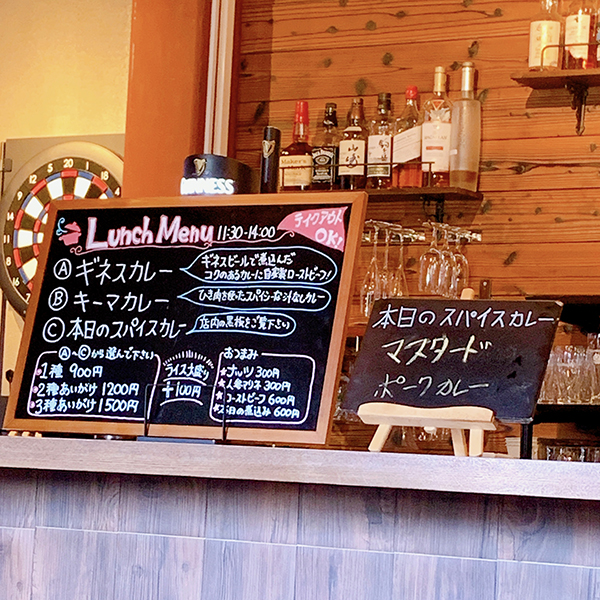 Lunch Menu 11:30-14:00
テイクアウト
OK!
Ⓐ ギネスカレー
ギネスビールで煮込んだ
コクのあるカレーに自家製ローストビーフ!
Ⓑ キーマカレー
ひき肉を使ったスパイシーな汁なしカレー
Ⓒ 本日のスパイスカレー
店内の黒板をご覧下さい
Ⓐ~Ⓒから選んで下さい
1種 900円
2種あいがけ 1200円
3種あいがけ 1500円
ライス大盛り
+100円
おつまみ
★ナッツ 300円
300円
★ローストビーフ 600円
★本日の煮込み 600円
本日のスパイスカレー
マスタード
ポークカレー
GUINNESS
Maker's
JACK
山崎